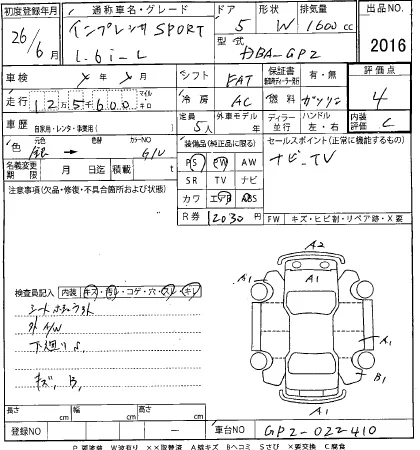 初度登録年月 通称車名・グレード ドア 形状 排気量 出品NO.
26/6月 インプレッサ SPORT 1.6i-L 5 W 1600cc 2016
型式 DBA-GP2
車検 年 月 シフト FAT 保証書 有・無 評価点
走行 125600 マイル キロ 冷房 AC 燃料 ガソリン 4
車歴 自家用・レンタ・事業用( ) 定員 5人 外車モデル 年 ディーラー 並行 ハンドル 左・右 内装評価 C
色 元色 銀 色替 カラーNO G1U 装備品(純正品に限る) セールスポイント(正常に機能するもの)
名義変更期限 月 日迄 積載 t PS PW AW ナビ、TV
SR TV ナビ
注意事項(欠品・修復・不具合箇所および状態) カワ エアB ABS
R券 12030円 FW キズ・ヒビ割・リペア跡・X要
A2
A1
A1 A1
検査員記入 内装 キズ・汚レ・コゲ・穴・スレ・キレ
外 A/W
下廻り
A1
キズ、B1 A1 B1
A1
長さ cm 幅 cm 高さ cm
登録NO ― 車台NO GP2-022410
P 要塗装 W波有り ××取替済 A線キズ Bヘコミ Sさび ×要交換 C腐食